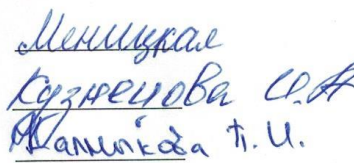 Меницкая
Кузнецова О.А
Калмыкова Т.И.